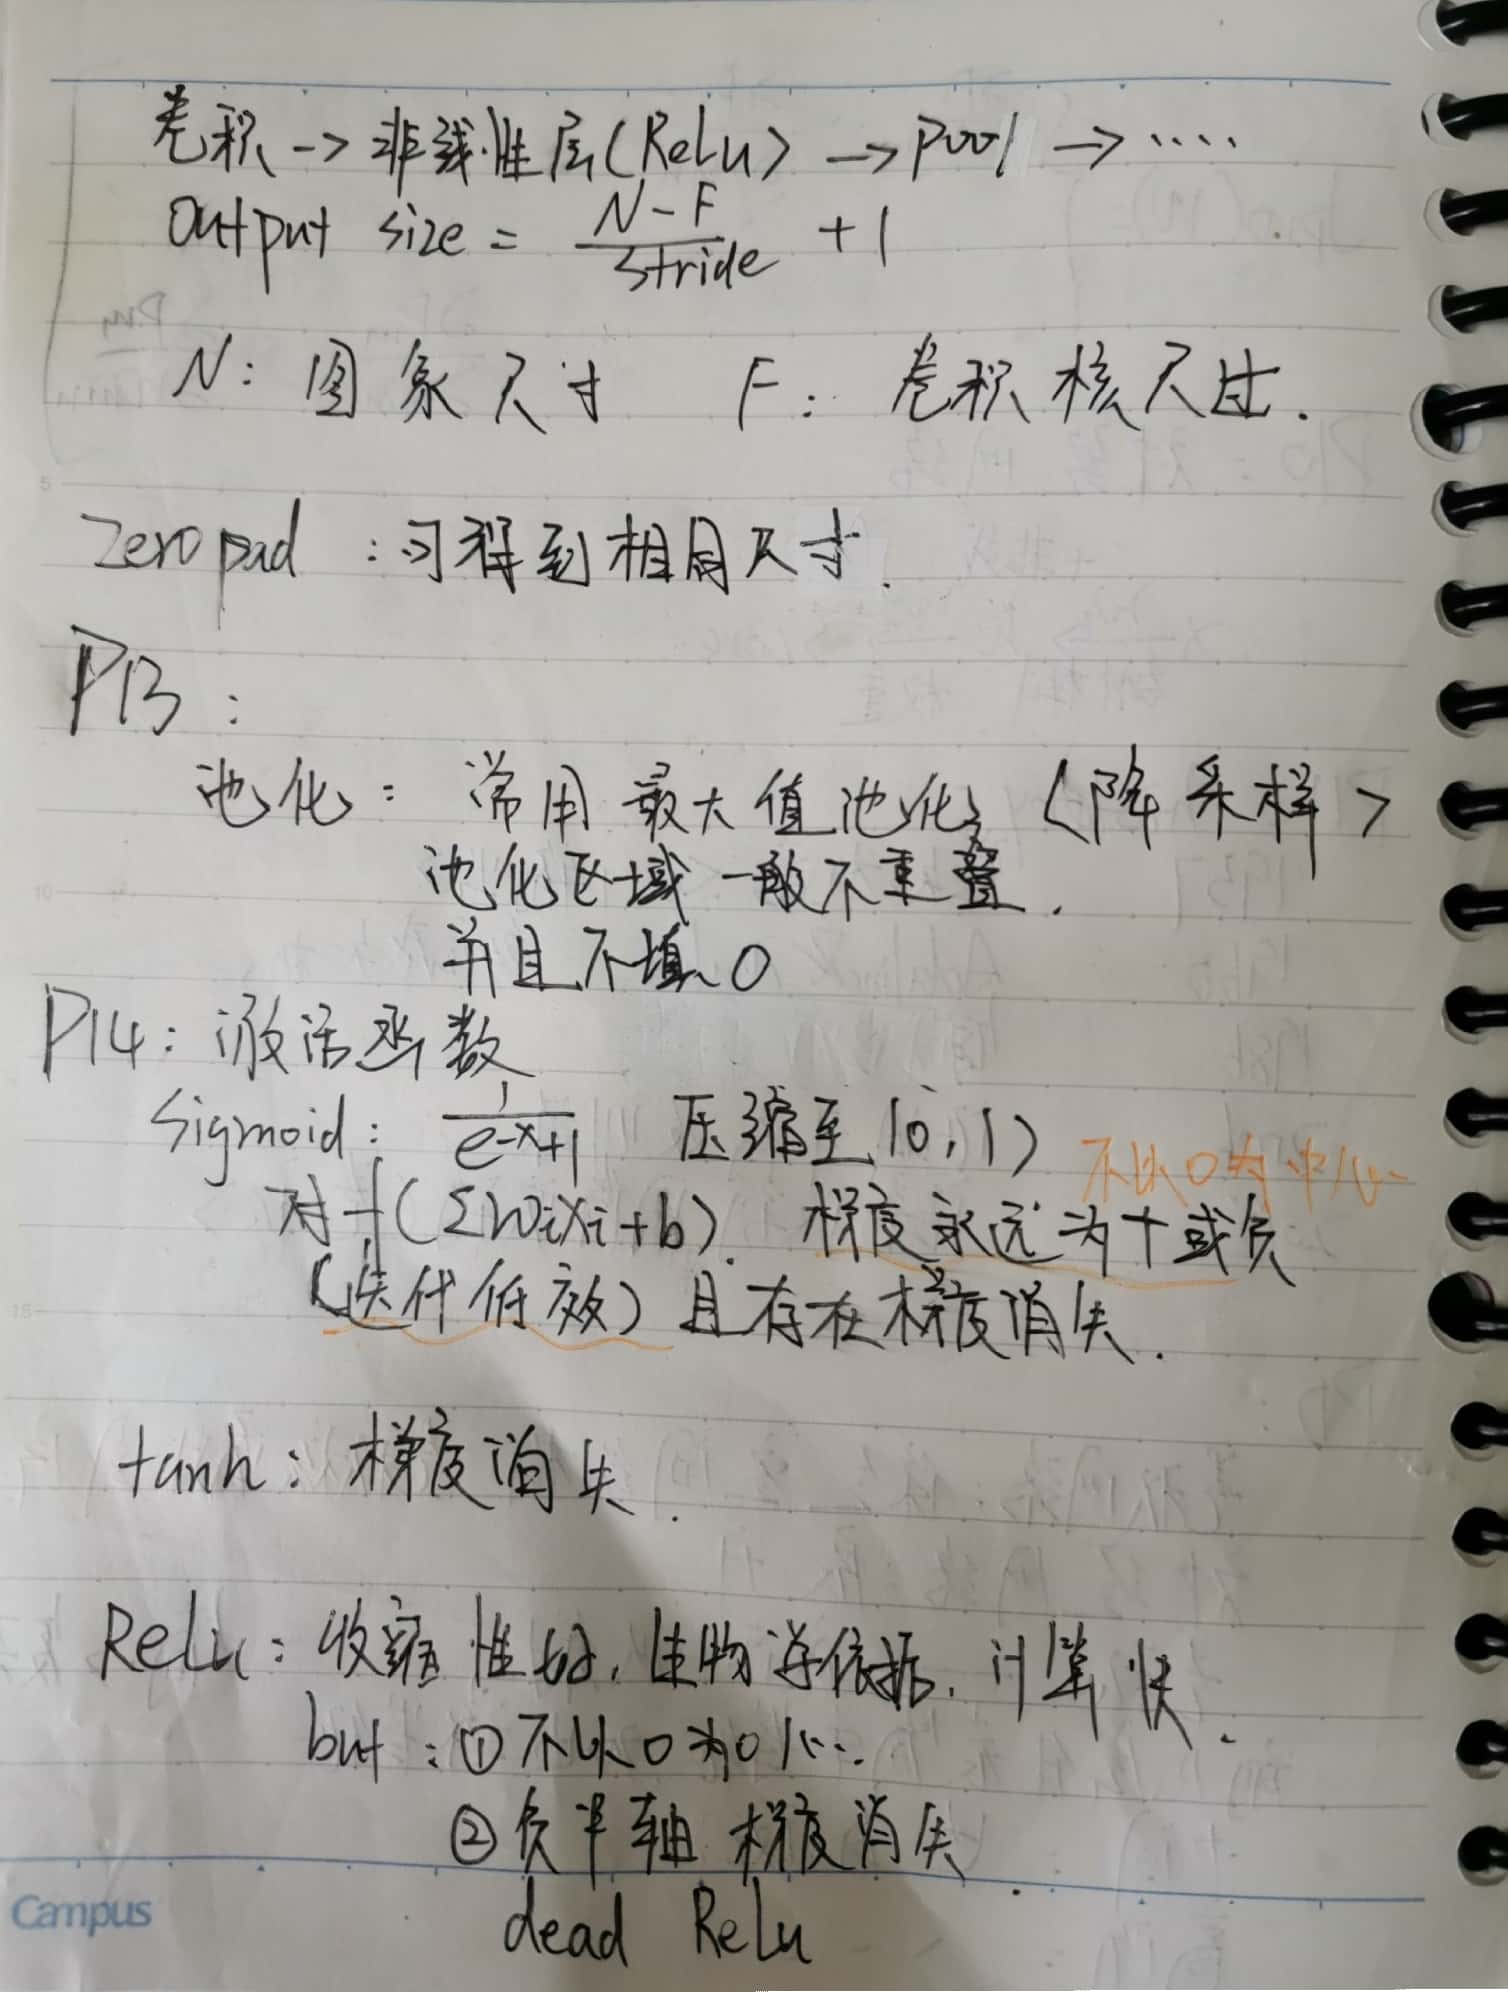 卷积→非线性层(Relu)→pool→····
output size = (N-F)/stride +1
N: 图象尺寸 F: 卷积核尺寸.
zero pad :可得到相同尺寸.
P13:
池化: 常用最大值池化 <降采样>
池化区域一般不重叠.
并且不填0
P14: 激活函数
sigmoid: 1/(e^-x+1) 压缩至(0,1)
不以0为中心
对f(ΣWiXi+b). 梯度永远为+或负
(迭代低效)且存在梯度消失.
tanh: 梯度消失.
Relu: 收缩性好,生物学依据,计算快.
but:①不以0为心
②负半轴梯度消失.
dead Relu
Campus